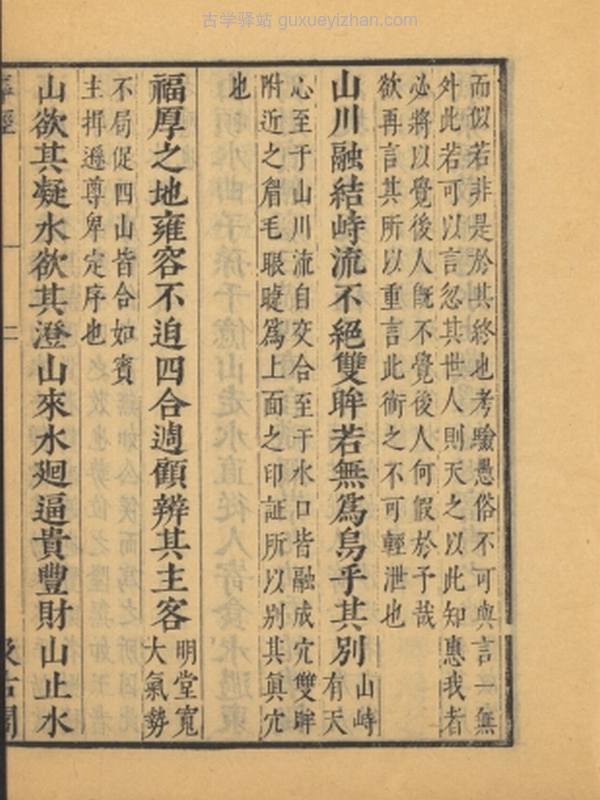 古学驿站 guxueyizhan.com
而似若非是於其終也考驗愚俗不可與言一無
外此若可以言忽其世人則天之以此知惠我者
必將以覺後人既不覺後人何假於予哉
欲再言其所以重言此術之不可輕泄也
山川融結峙流不絕雙眸若無爲烏乎其別
山峙
有天
心至于山川流自交合至于水口皆融成宂雙眸
附近之眉毛眼睫爲上面之印証所以別其眞宂
也
福厚之地雍容不迫四合週顧辨其主客
明堂寬
大氣勢
不局促四山皆合如賓
主揖遜尊卑定序也
山欲其凝水欲其澄山來水廻逼貴豐財山止水
二